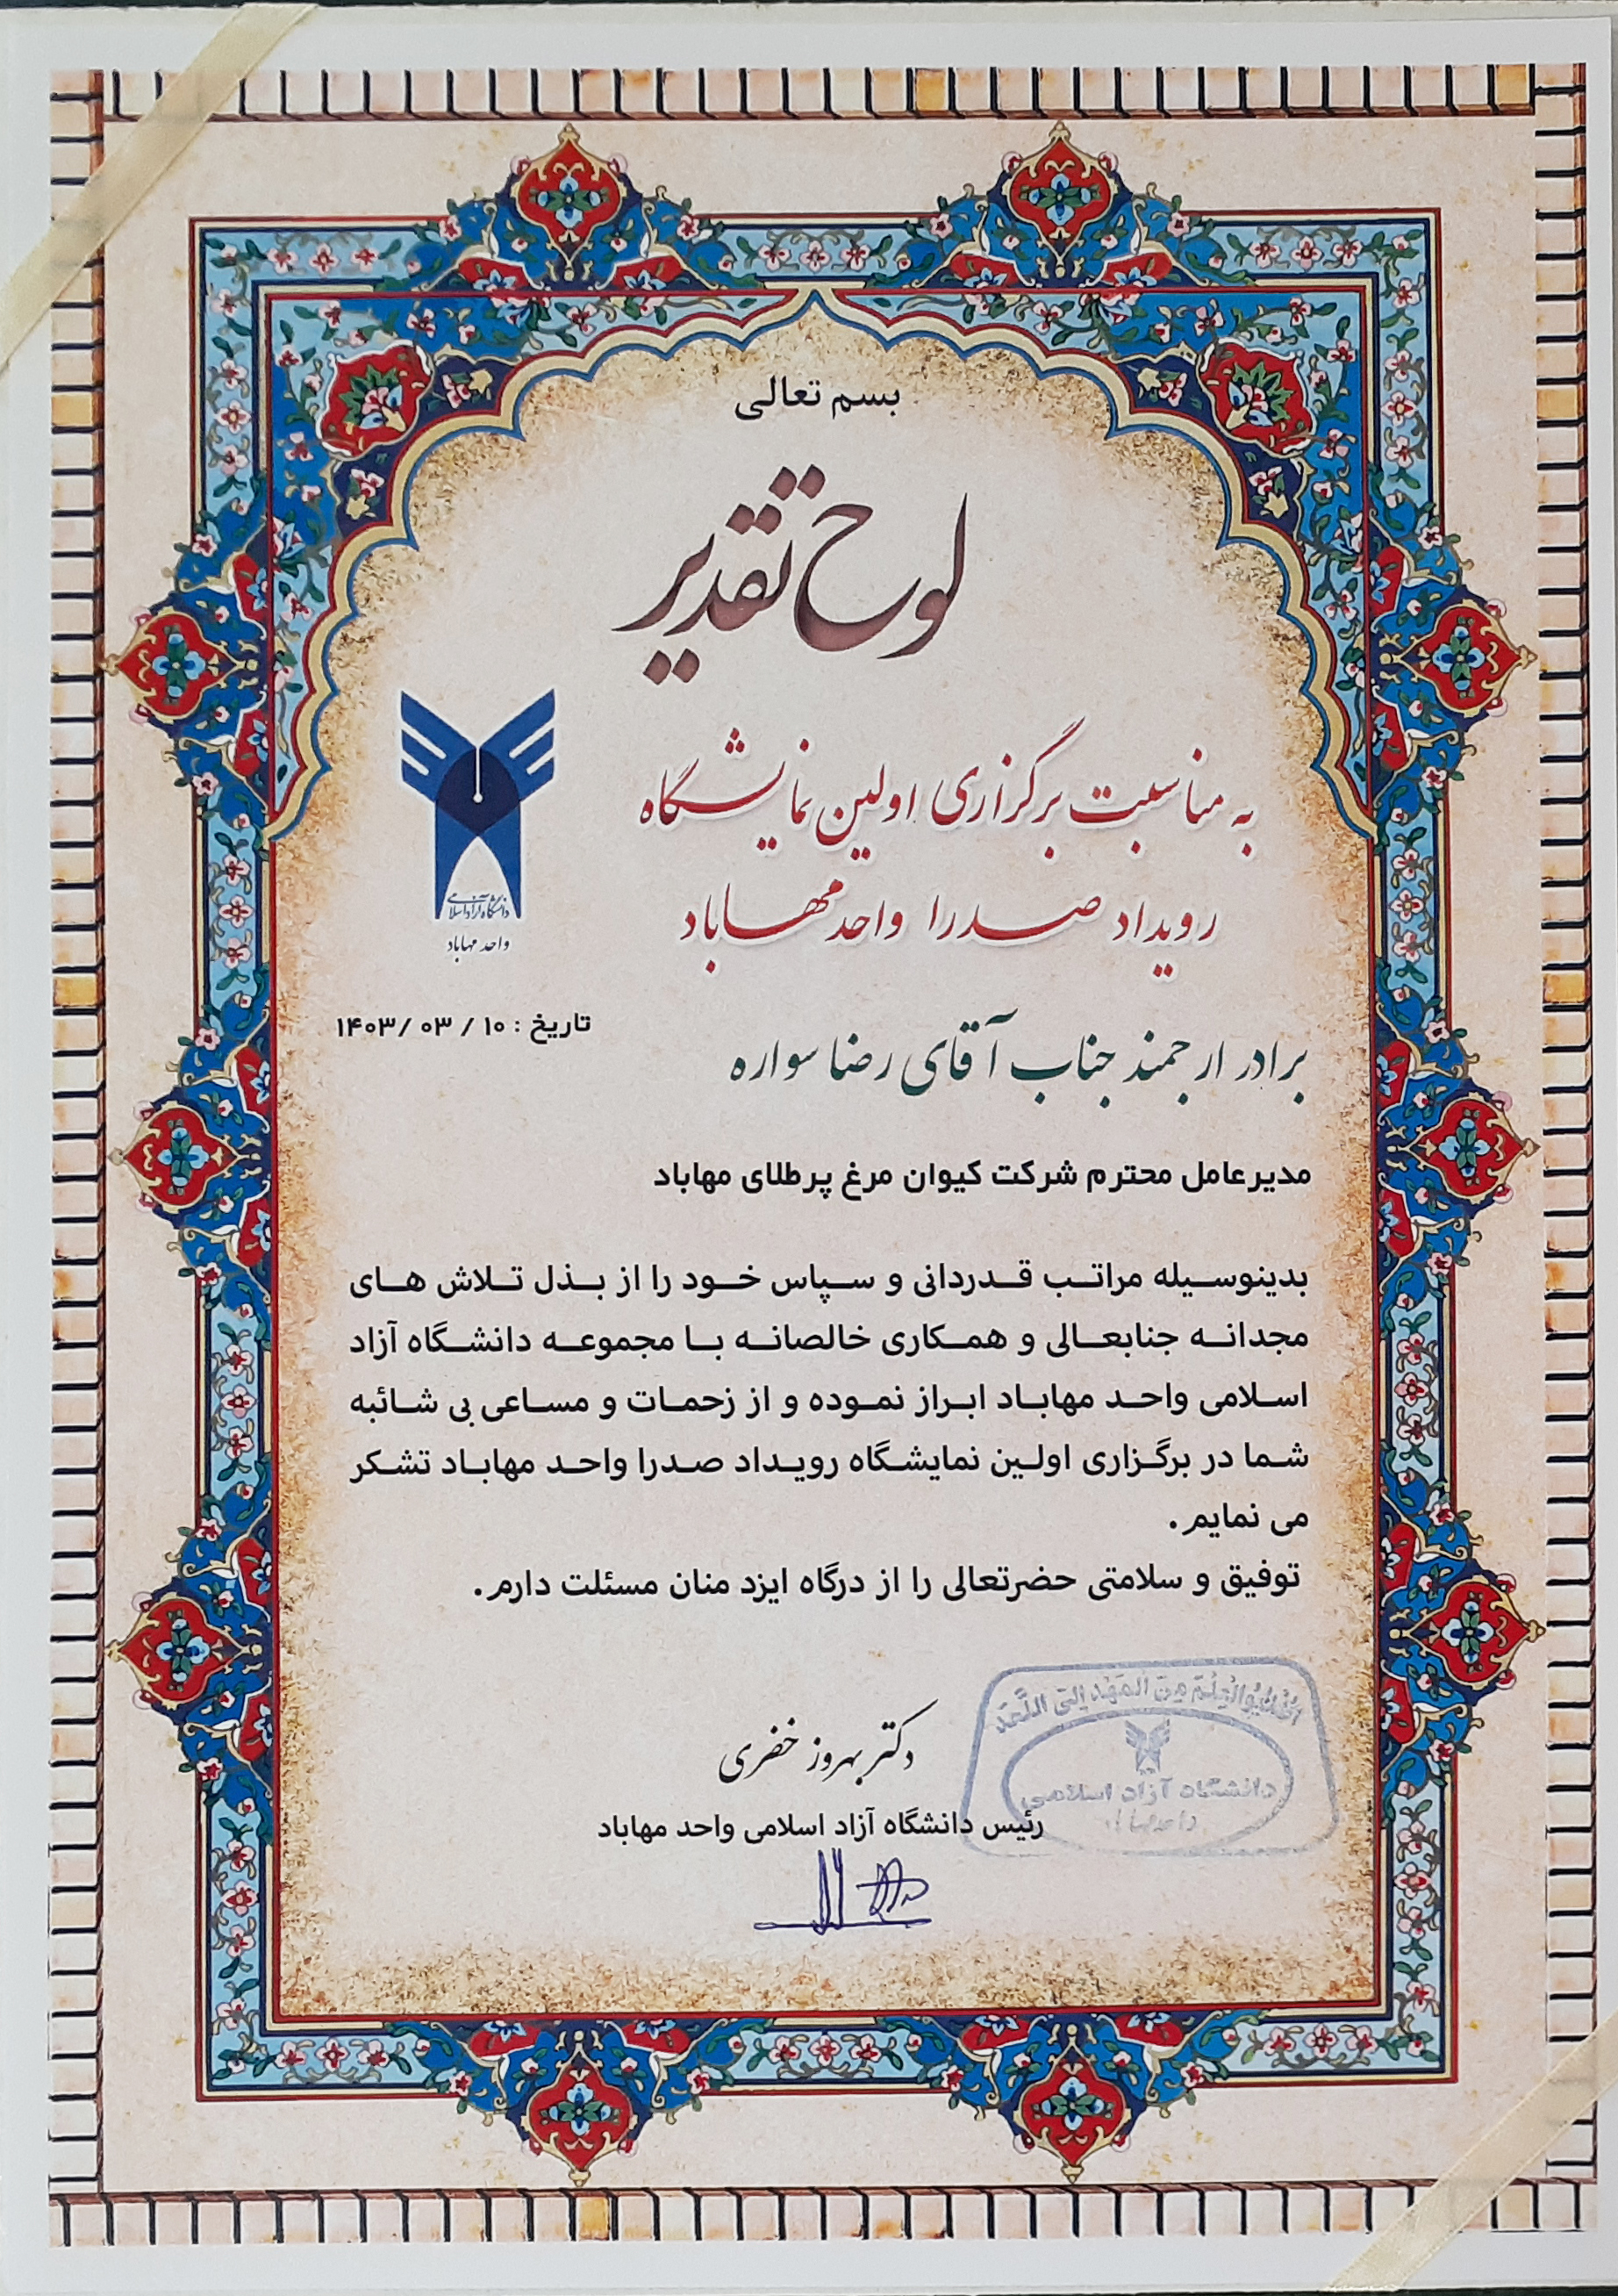 بسم تعالی
لوح تقدیر
به مناسبت برگزاری اولین نمایشگاه
رویداد صدرا واحد مهاباد
دانشگاه آزاد اسلامی
واحد مهاباد
تاریخ : ۱۰ / ۰۳ /۱۴۰۳
برادر ارجمند جناب آقای رضا سواره
مدیرعامل محترم شرکت کیوان مرغ پرطلای مهاباد
بدینوسیله مراتب قدردانی و سپاس خود را از بذل تلاش های
مجدانه جنابعالی و همکاری خالصانه با مجموعه دانشگاه آزاد
اسلامی واحد مهاباد ابراز نموده و از زحمات و مساعی بی شائبه
شما در برگزاری اولین نمایشگاه رویداد صدرا واحد مهاباد تشکر
می نمایم .
توفیق و سلامتی حضرتعالی را از درگاه ایزد منان مسئلت دارم .
اُطْلُبُوالْعِلْمَ مِنَ الْمَهْدِ اِلَی اللَّحَدِ
دانشگاه آزاد اسلامی
واحد مهاباد
دکتر بهروز خضری
رئیس دانشگاه آزاد اسلامی واحد مهاباد